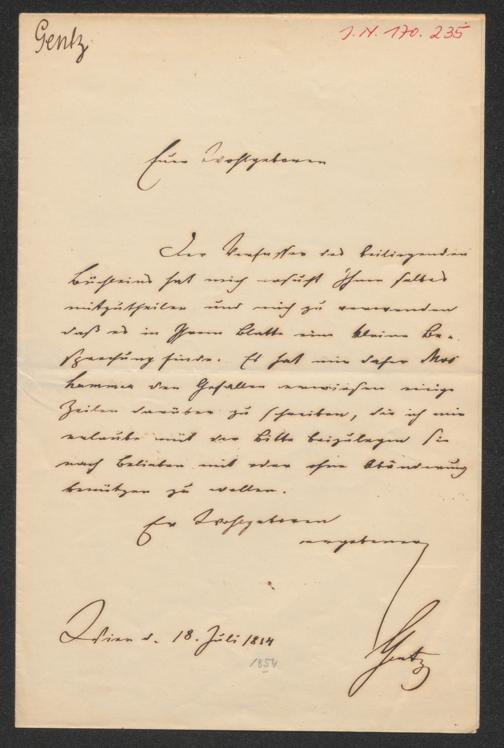 Gentz
I.N. 170.235
Euer Wohlgeboren
Der Verfasser des beiliegenden
Büchleins hat mich ersucht Ihnen selbes
mitzutheilen und mich zu verwenden
daß es in Ihrem Blatte eine kleine Be-
sprechung finde. Es hat mir daher
den Gefallen erwiesen einige
Zeilen darüber zu schreiben, die ich mir
erlaube mit der Bitte beizulegen Sie
nach Belieben mit oder ohne Abänderung
benützen zu wollen.
Ew Wohlgeboren
ergebener
Gentz
Wien d. 18. Juli 1854
1854